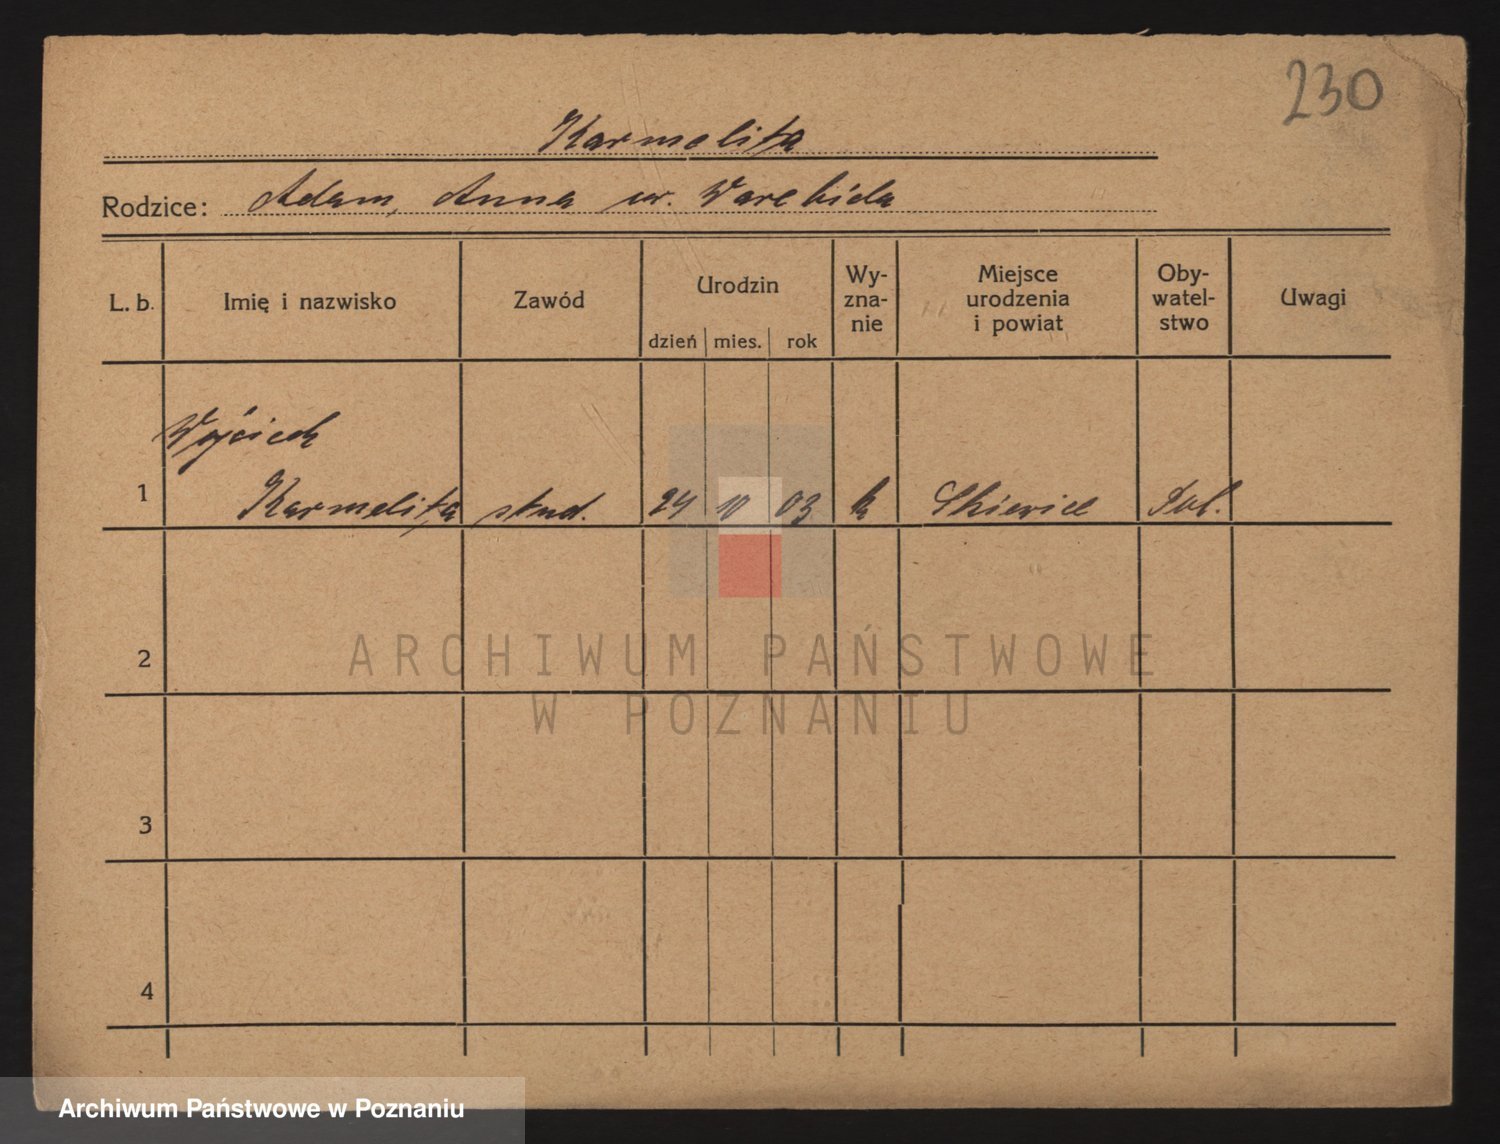 230
Karmelita
Rodzice: Adam, Anna ur. Warchida
L. b. Imię i nazwisko Zawód Urodzin Wy-zna-nie Miejsce urodzenia i powiat Oby-watel-stwo Uwagi
dzień mies. rok
Wojciech
1 Karmelita stud. 24 10 03 k Pol.
2
ARCHIWUM PAŃSTWOWE
W POZNANIU
3
4
Archiwum Państwowe w Poznaniu